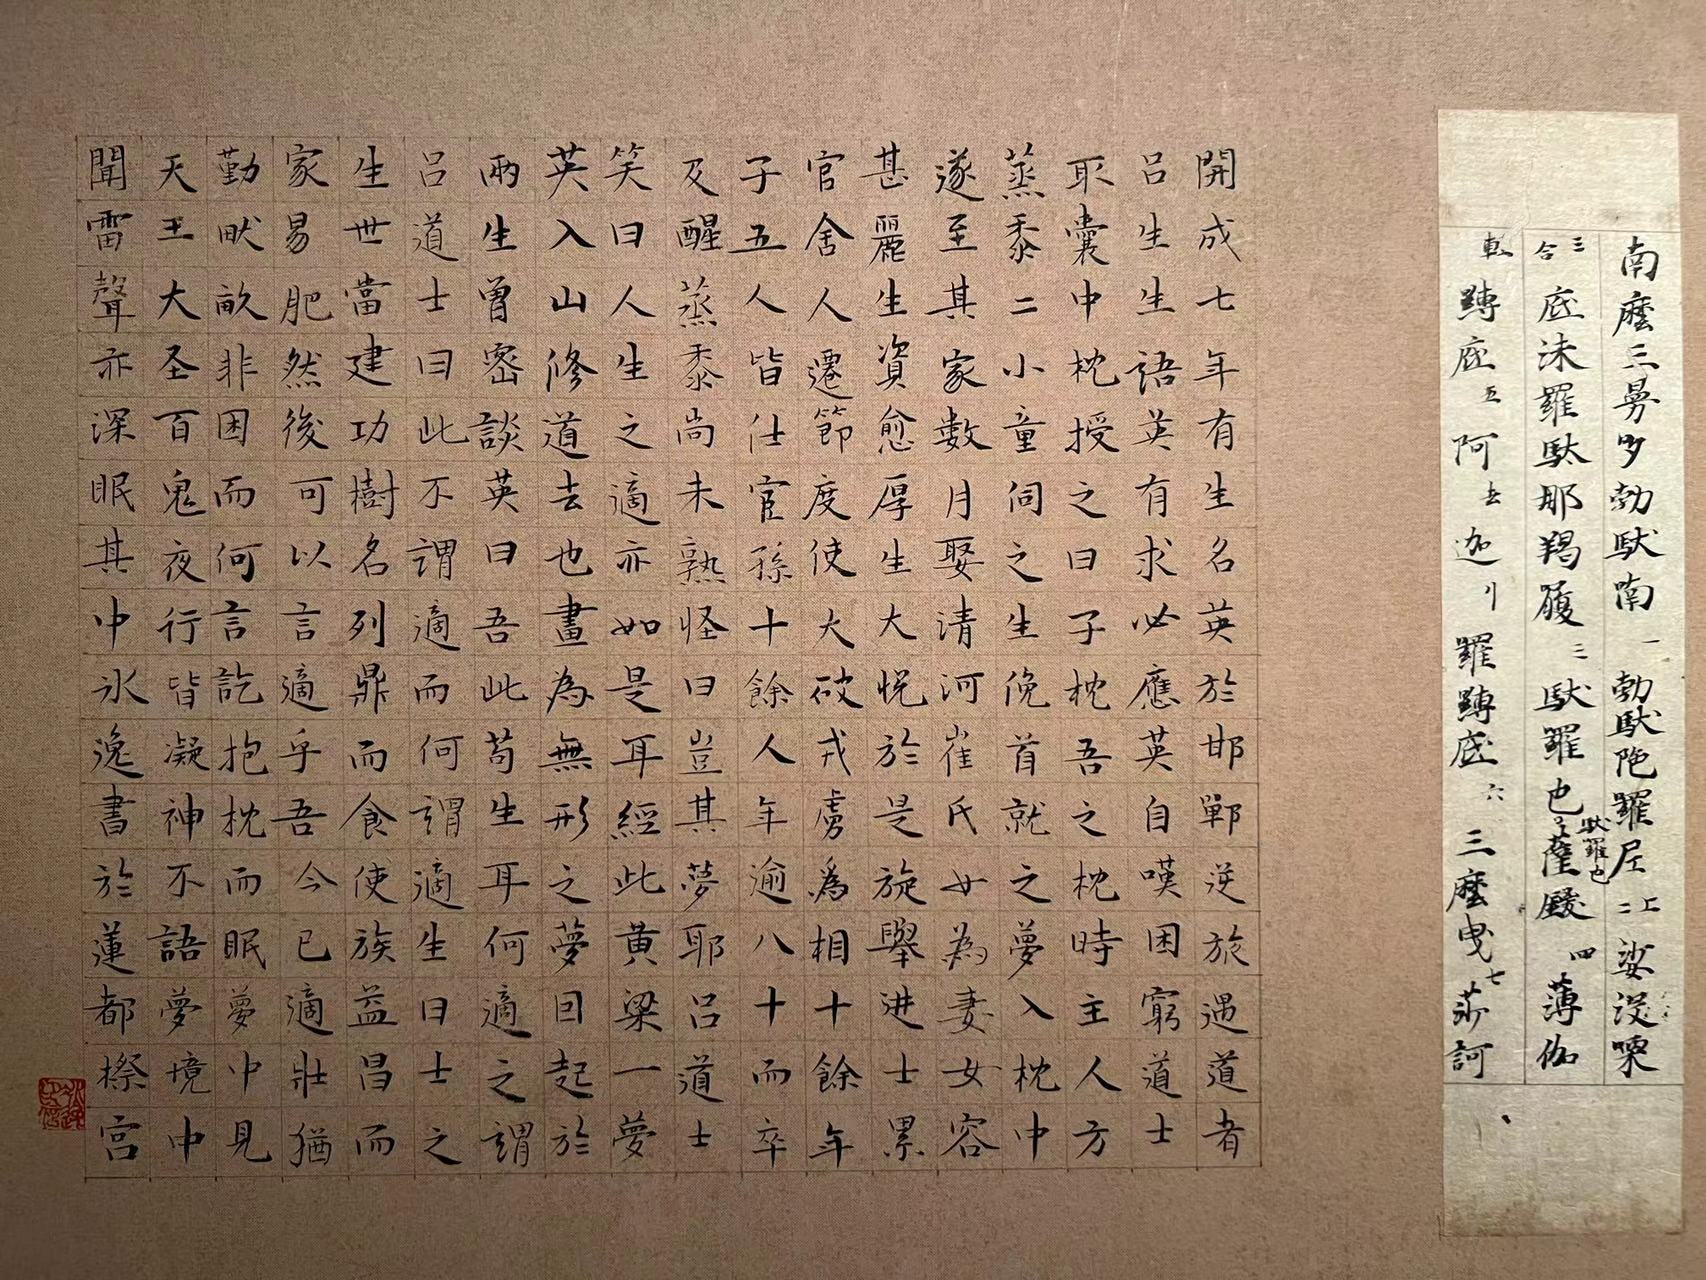 南麼三曩多勃馱喃一勃馱陁羅尼上二娑沒㗚
三合底沬羅馱那羯履三馱羅也馱羅也薩四薄伽
底五阿去迦羅底六三麼曳七莎訶
開成七年有生名英於邯鄲逆旅遇道者
呂生生語英有求必應英自嘆困窮道士
取囊中枕授之曰子枕吾之枕時主人方
蒸黍二小童伺之生俛首就之夢入枕中
遂至其家數月娶清河崔氏女為妻女容
甚麗生資愈厚生大悅於是旋舉進士累
官舍人遷節度使大破戎虜為相十餘年
子五人皆仕宦孫十餘人年逾八十而卒
及醒蒸黍尚未熟怪曰豈其夢耶呂道士
笑曰人生之適亦如是耳經此黃粱一夢
英入山修道去也畫為無形之夢回起於
兩生曾密談英曰吾此苟生耳何適之謂
呂道士曰此不謂適而何謂適生曰士之
生世當建功樹名列鼎而食使族益昌而
家易肥然後可以言適乎吾今已適壯猶
勤畎畝非困而何言訖抱枕而眠夢中見
天王大圣百鬼夜行皆凝神不語夢境中
聞雷聲亦深眠其中氷逸書於蓮都宮